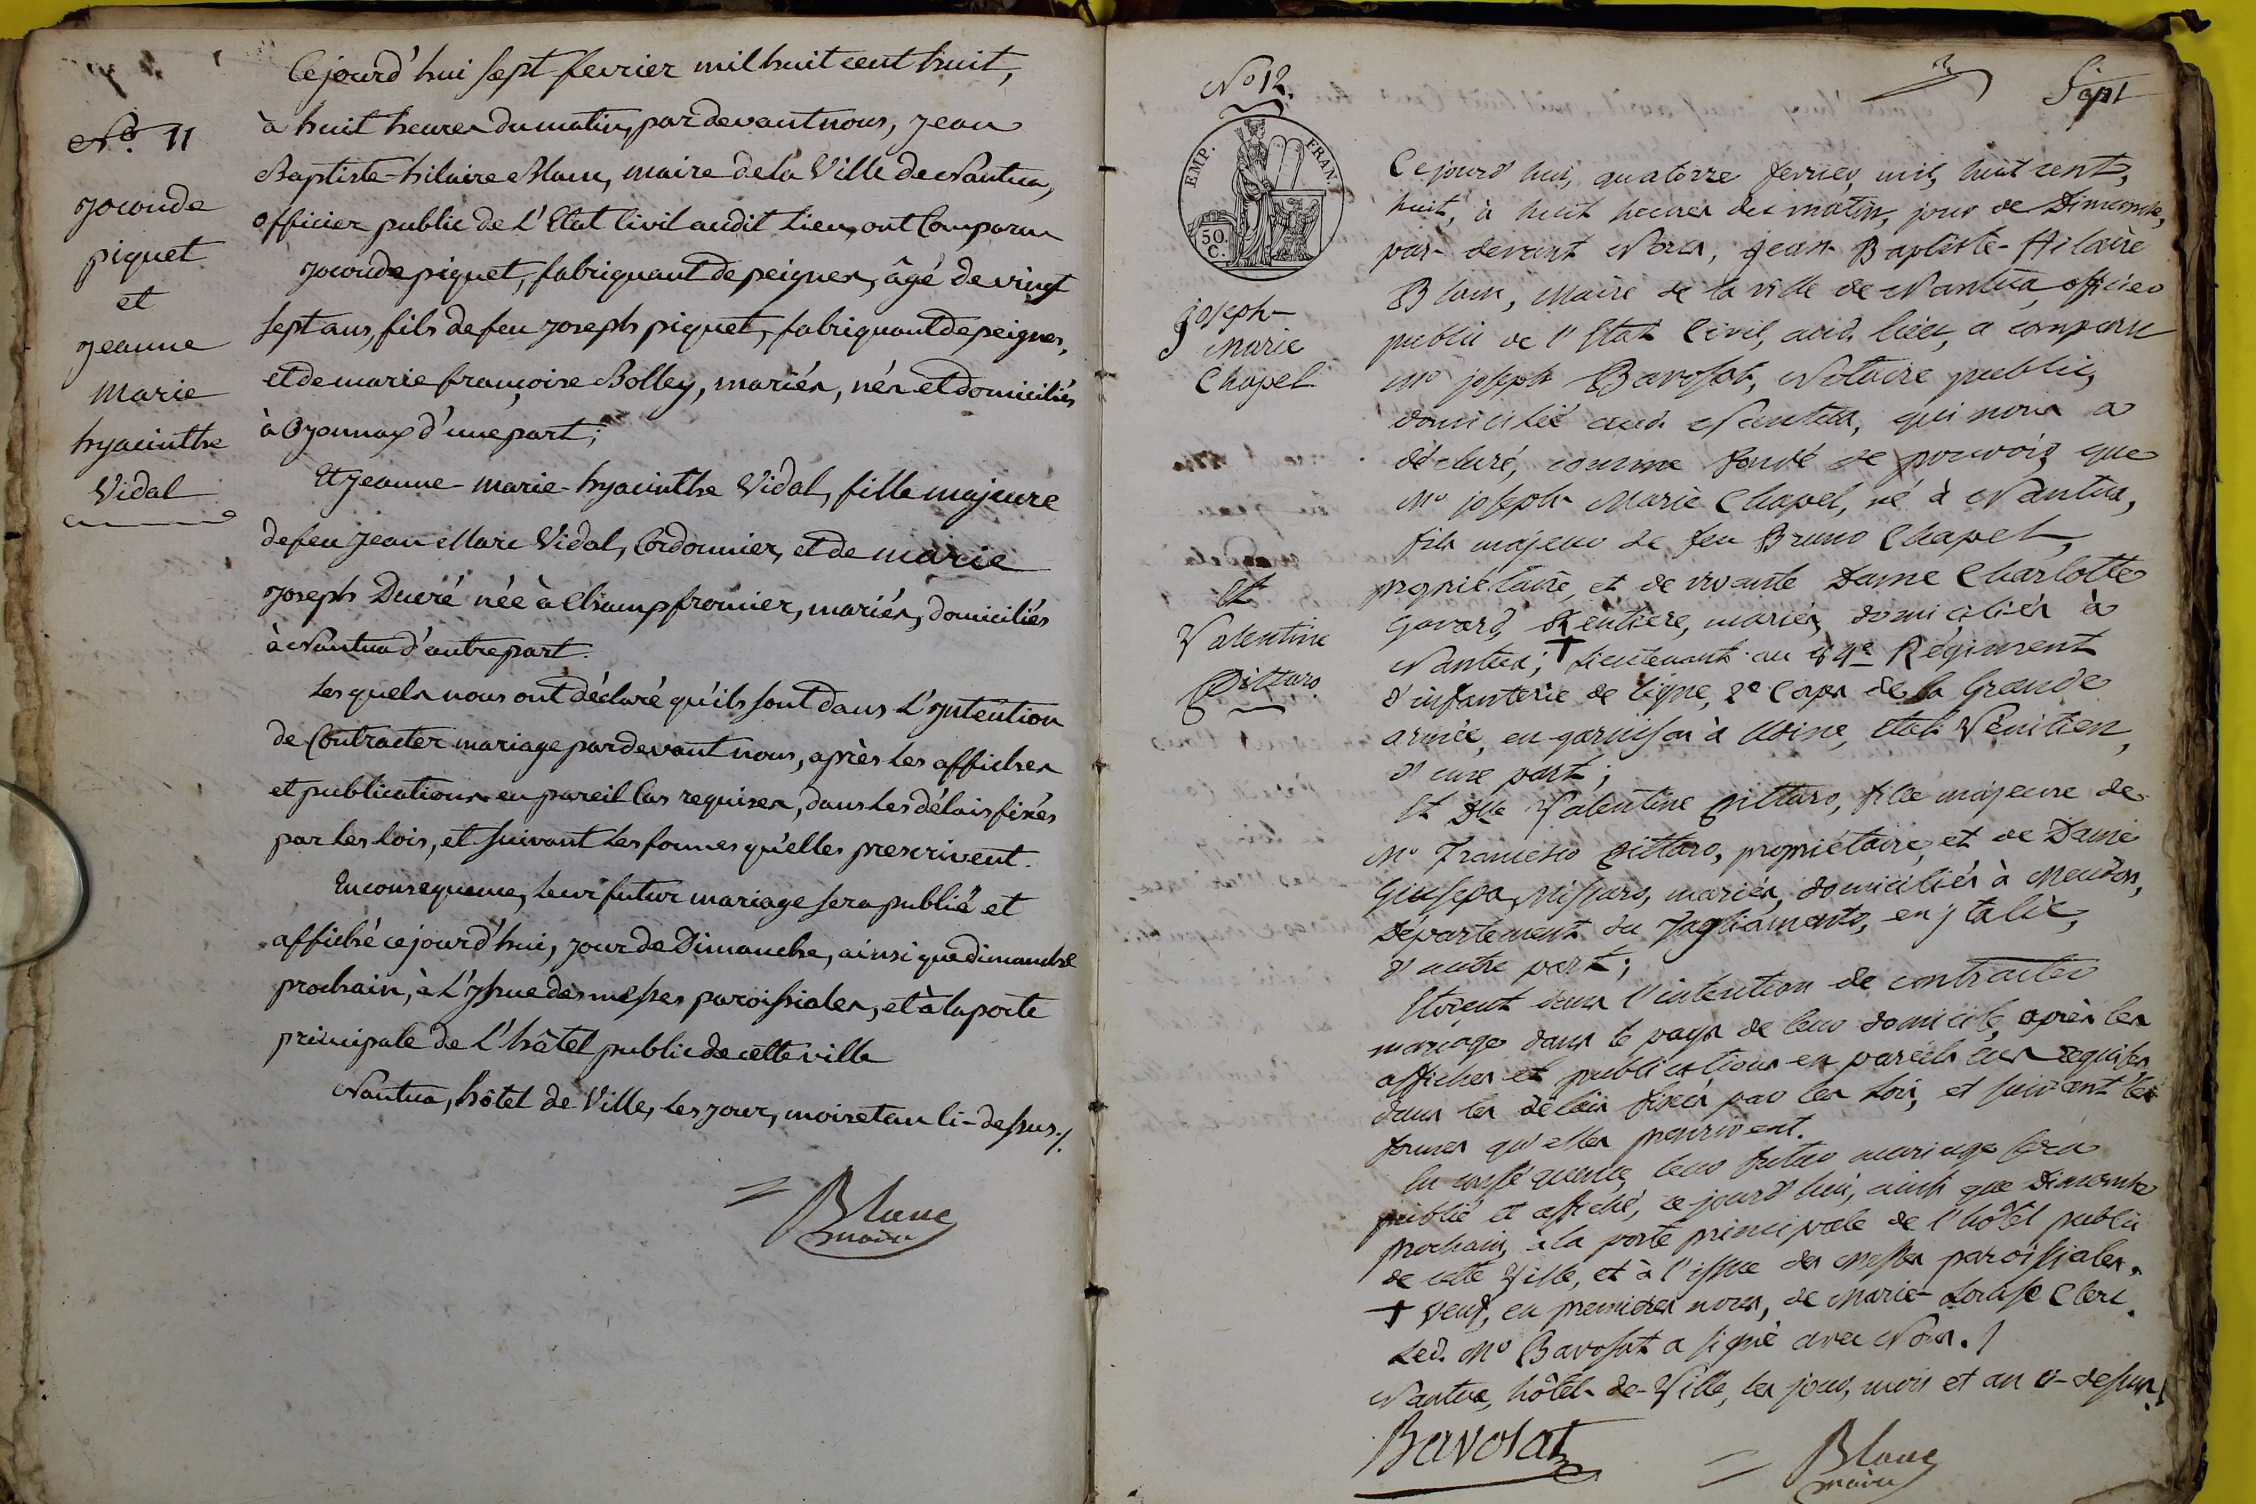 Nº 11
joconde
piquet
et
jeanne
marie
hyacinthe
Vidal
Cejourd'hui sept fevrier mil huit cent huit,
à huit heures du matin, pardevant nous, jean
Baptiste-hilaire Blanc, maire de la Ville de Nantua,
officier public de L'Etat Civil audit Lieu, ont Comparu
joconde piquet, fabriquant de peignes, âgé de vingt
sept ans, fils de feu joseph piquet, fabriquant de peignes,
et de marie françoise Bolley, mariés, nés et domiciliés
à Oyonnax d'une part;
Et jeanne-marie-hyacinthe Vidal, fille majeure
de feu jean Marc Vidal, Cordonnier, et de marie
joseph Ducré née à Champfromier, mariés, domiciliés
à Nantua d'autre part.
Les quels nous ont déclaré qu'ils sont dans L'yntention
de Contracter mariage pardevant nous, après les affiches
et publications en pareil Cas requises, dans les délais fixés
par les Lois, et suivant les formes qu'elles prescrivent.
En consequence, leur futur mariage sera publié et
affiché cejourd'hui, jour de Dimanche, ainsi que dimanche
prochain, à L'yssue des messes paroissiales, et à la porte
principale de L'hôtel public de cette ville
Nantua, hôtel de Ville, les jour, mois et an Ci-dessus./.
Blanc
maire
Nº 12.
EMP. FRAN.
50.
C.
joseph-
Marie
Chapel
Et
Valentine
Pittaro
Sept
Cejourd'hui, quatorze fevrier, mil, huit cent,
huit, à huit heures du matin, jour de Dimanche,
par-devant Nous, jean Baptiste-Hilaire
Blanc, Maire de la ville de Nantua, officier
public de l'Etat Civil, aud. lieu, a comparu
Mr joseph Bavosat, Notaire public,
domicilié aud. Nantua, qui nous a
déclaré, comme fondé de pouvoir, que
Mr joseph Marie Chapel, né à Nantua,
fils majeur de feu Bruno Chapel,
propriétaire, et de vivante Dame Charlotte
Gavard, Rentiere, mariés, domiciliés à
Nantua; + Lieutenant au Régiment
d'infanterie de ligne, 2e Corps de la Grande
armée, en garnison à Udine, Etat Vénitien,
d'une part;
Et Dlle Valentine Pittaro, fille majeure de
Mr Francesco Pittaro, propriétaire, et de Dame
Giusepa Missaro, mariés, domiciliés à
Département du Tagliamento, en jtalie,
d'autre part;
Etoient dans l'intention de contracter
mariage dans le pays de leur domicile, après les
affiches et publications en pareils cas requises,
dans les délais fixés par les Lois, et suivant les
formes qu'elles prescrivent.
En conséquence, leur futur mariage sera
publié et affiché, ce jourd'hui, ainsi que Dimanche
prochain, à la porte principale de l'hôtel public
de cette Ville, et à l'issue des messes paroissiales.
+ Veuf, en premieres noces, de Marie-Louise Clerc.
Led. Mr Bavosat a signé avec Nous./
Nantua, hôtel-de-Ville, les jour, mois et an ci-dessus./
Bavosat
Blanc
maire